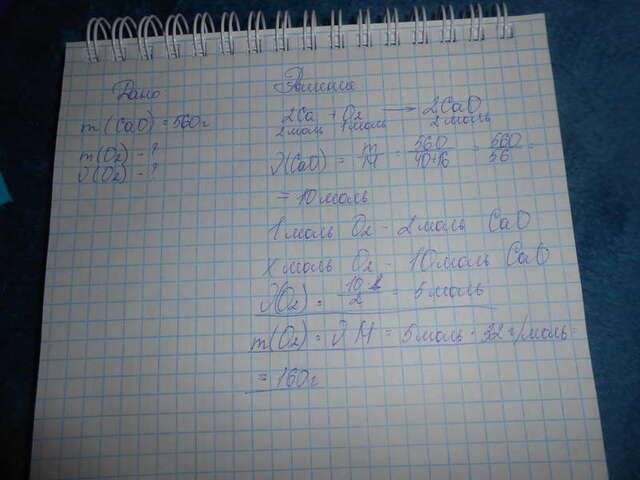 Дано
Решение
m(CaO) = 560г
2Ca + O2 → 2CaO
2моль 1моль 2моль
m(O2) - ?
ν(O2) - ?
ν(CaO) = m/M = 560/40+16 = 560/56 =
= 10 моль
1 моль O2 - 2 моль CaO
x моль O2 - 10 моль CaO
ν(O2) = 10·1/2 = 5 моль
m(O2) = ν M = 5 моль · 32 г/моль =
= 160 г